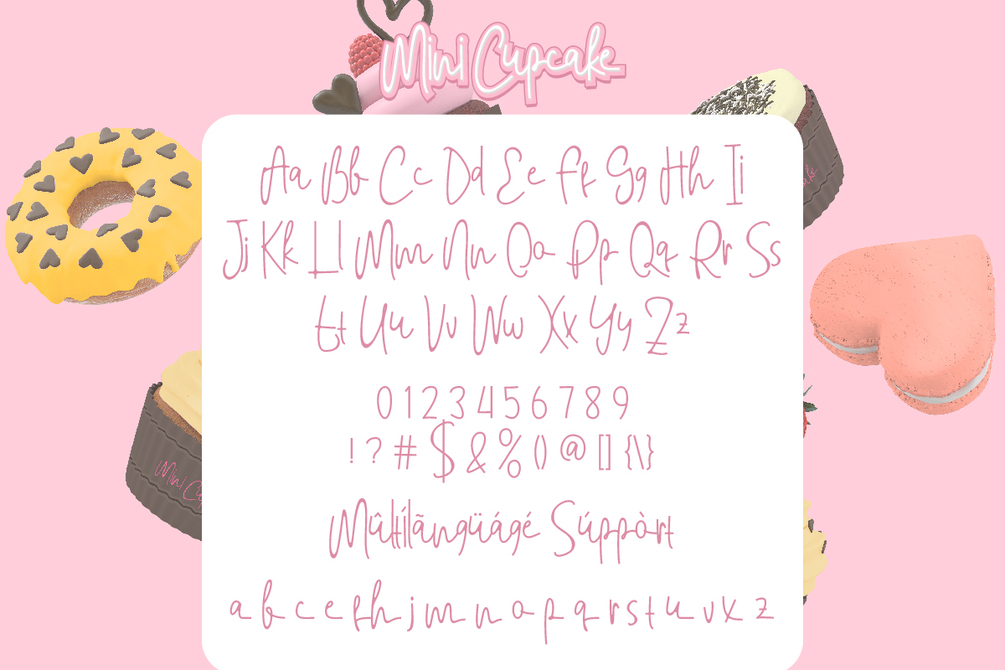 Mini Cupcake
Aa Bb Cc Dd Ee Ff Gg Hh Ii
Jj Kk Ll Mm Nn Oo Pp Qq Rr Ss
Tt Uu Vv Ww Xx Yy Zz
0123456789
!?#$&%()@[]{\}
Mûltílãngüágé Súppòrt
a b c e f h j m n o p q r s t u v x z